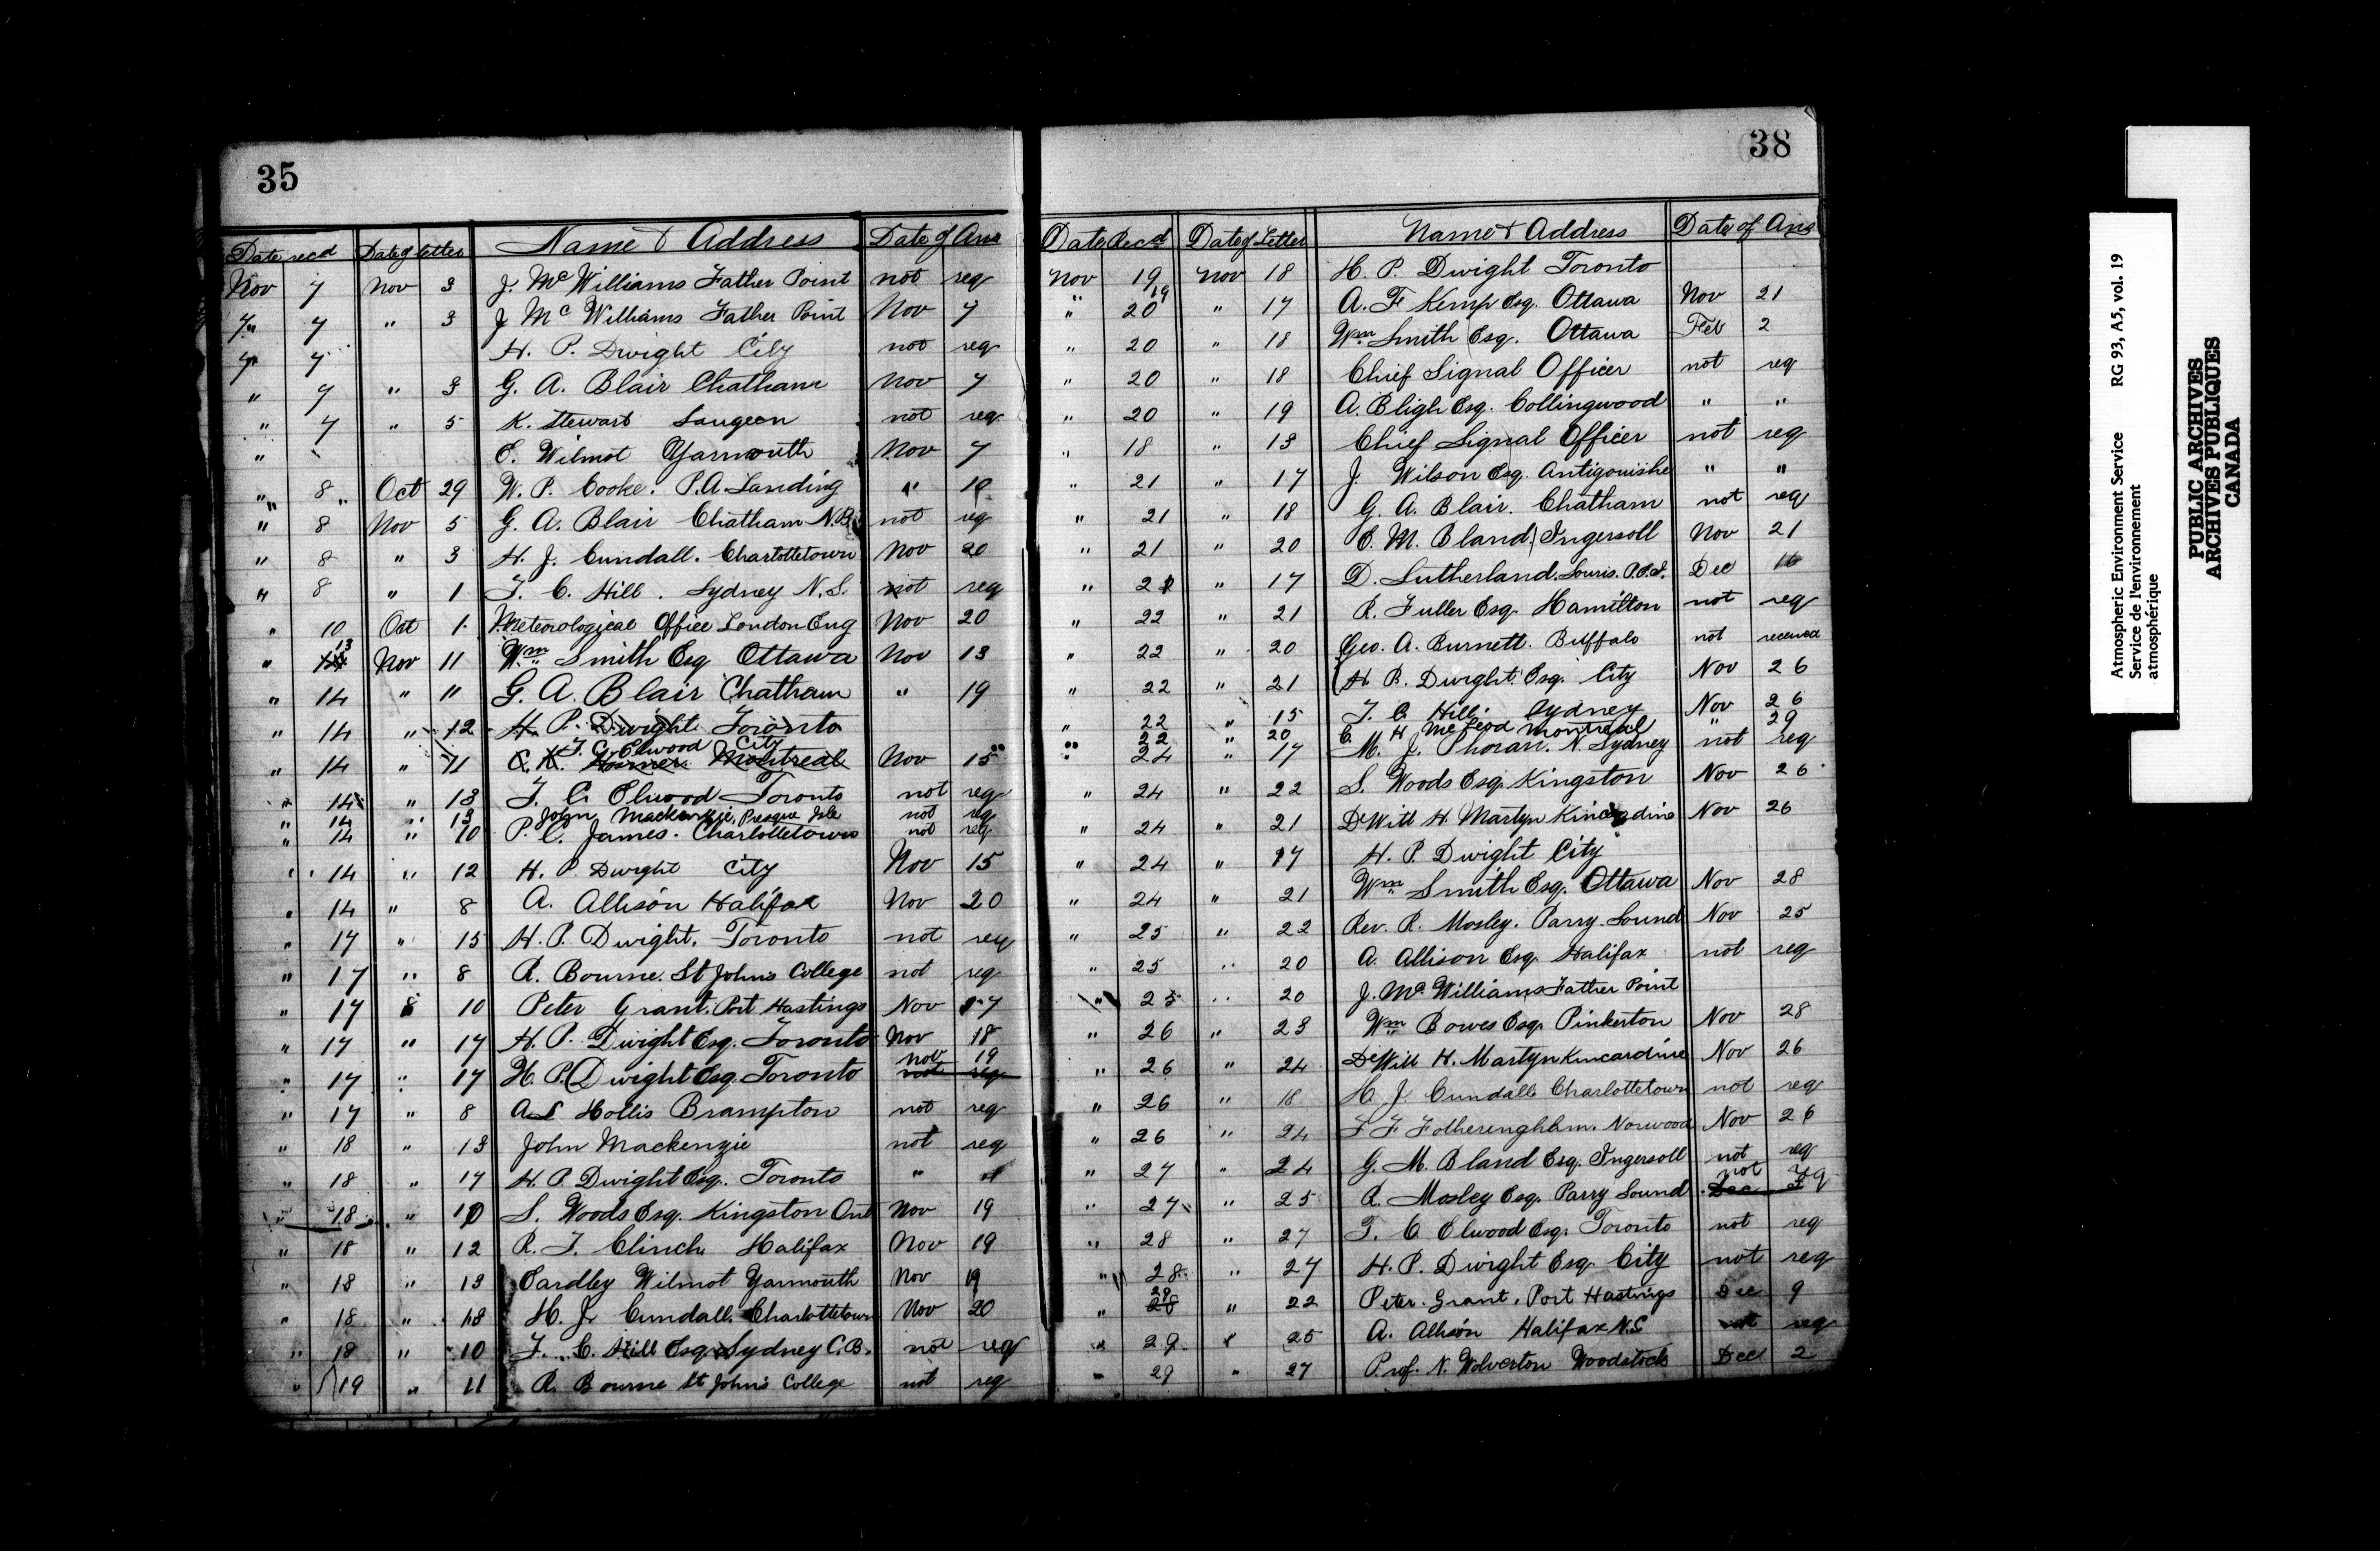 35
Date recd Date of letter Name & Address Date of Ans
Nov 7 Nov 3 J. McWilliams Father Point not req
" 7 " 3 J McWilliams Father Point Nov 7
" 7 H. P. Dwight City not req
" 7 " 3 G. A. Blair Chatham Nov 7
" 7 " 5 K. Stewart Saugeen not req
" E. Wilmot Yarmouth Nov 7
" 8 Oct 29 W. P. Cooke. P.A. Landing " 10
" 8 Nov 5 G. A. Blair Chatham N.B. not req
" 8 " 3 H. J. Cundall. Charlottetown Nov 20
" 8 " 1 T. C. Hill. Sydney N.S. not req
" 10 Oct 1 Meteorological Office London Eng Nov 20
" 13 Nov 11 Wm Smith Esq Ottawa Nov 13
" 14 " " G. A. Blair Chatham " 19
" 14 " 12 H. P. Dwight Toronto
T. C. Elwood City
" 14 " 11 C. H. Montreal Nov 15
" 14 " 13 T. C. Elwood Toronto not req
" 14 " 13 John Mackenzie, Presque Isle not req
" 14 " 10 P. C. James. Charlottetown not req
" 14 " 12 H. P. Dwight City Nov 15
" 14 " 8 A. Allison Halifax Nov 20
" 17 " 15 H. P. Dwight. Toronto not req
" 17 " 8 R. Bourne. St Johns College not req
" 17 10 Peter Grant. Port Hastings Nov 17
" 17 " 17 H. P. Dwight Esq. Toronto Nov 18
" 17 " 17 H. P. Dwight Esq. Toronto Nov 19 not req
" 17 " 8 A S Hollis Brampton not req
" 18 " 13 John Mackenzie not req
" 18 " 17 H. P. Dwight Esq. Toronto " "
" 18 " 10 S. Woods Esq. Kingston Ont Nov 19
" 18 " 12 R. T. Clinch Halifax Nov 19
" 18 " 13 Eardley Wilmot Yarmouth Nov 19
" 18 " 13 H. J. Cundall. Charlottetown Nov 20
" 18 " 10 T. C. Hill Esq Sydney C.B. not req
" 19 " 11 R. Bourne St John's College not req
38
Date Recd Date of Letter Name & Address Date of Ans
Nov 19 Nov 18 H. P. Dwight Toronto
" 20 19 " 17 A. F Kemp Esq. Ottawa Nov 21
" 20 " 18 Wm Smith Esq. Ottawa Feb 2
" 20 " 18 Chief Signal Officer not req
" 20 " 19 A. Bligh Esq. Collingwood " "
" 18 " 13 Chief Signal Officer not req
" 21 " 17 J. Wilson Esq. Antigonishe " "
" 21 " 18 G. A. Blair. Chatham not req
" 21 " 20 E. M. Bland Ingersoll Nov 21
" 21 " 17 D. Sutherland. Souris. P.E.I. Dec 16
" 22 " 21 R. Fuller Esq. Hamilton not req
" 22 " 20 Geo. A. Burnett. Buffalo not received
" 22 " 21 H. P. Dwight Esq. City Nov 26
" 22 " 15 T. C. Hill. Sydney Nov 26
" 22 " 20 C. H McLeod Montreal " 29
" 24 " 17 M. J. Phoran. N. Sydney not req
" 24 " 22 S. Woods Esq. Kingston Nov 26
" 24 " 21 DeWitt H. Martyn Kincardine Nov 26
" 24 " 17 H. P. Dwight City
" 24 " 21 Wm Smith Esq. Ottawa Nov 28
" 25 " 22 Rev. R. Mosley. Parry Sound Nov 25
" 25 " 20 A. Allison Esq. Halifax not req
" 25 " 20 J. McWilliams Father Point
" 26 " 23 Wm Bowes Esq. Pinkerton Nov 28
" 26 " 24 DeWitt H. Martyn Kincardine Nov 26
" 26 " 18 H. J. Cundall Charlottetown not req
" 26 " 24 F F Fotheringham. Norwood Nov 26
" 27 " 24 G. M. Bland Esq. Ingersoll not req
" 27 " 25 R. Mosley Esq. Parry Sound not Dec
" 28 " 27 T. C Elwood Esq. Toronto not req
" 28 " 27 H. P. Dwight Esq. City not req
" 29 28 " 22 Peter Grant, Port Hastings Dec 9
" 29 " 25 A. Allison Halifax N.S not req
" 29 " 27 Prof. N. Wolverton Woodstock Dec 2
Atmospheric Environment Service RG 93, A5, vol. 19
Service de l'environnement
atmosphérique
PUBLIC ARCHIVES
ARCHIVES PUBLIQUES
CANADA